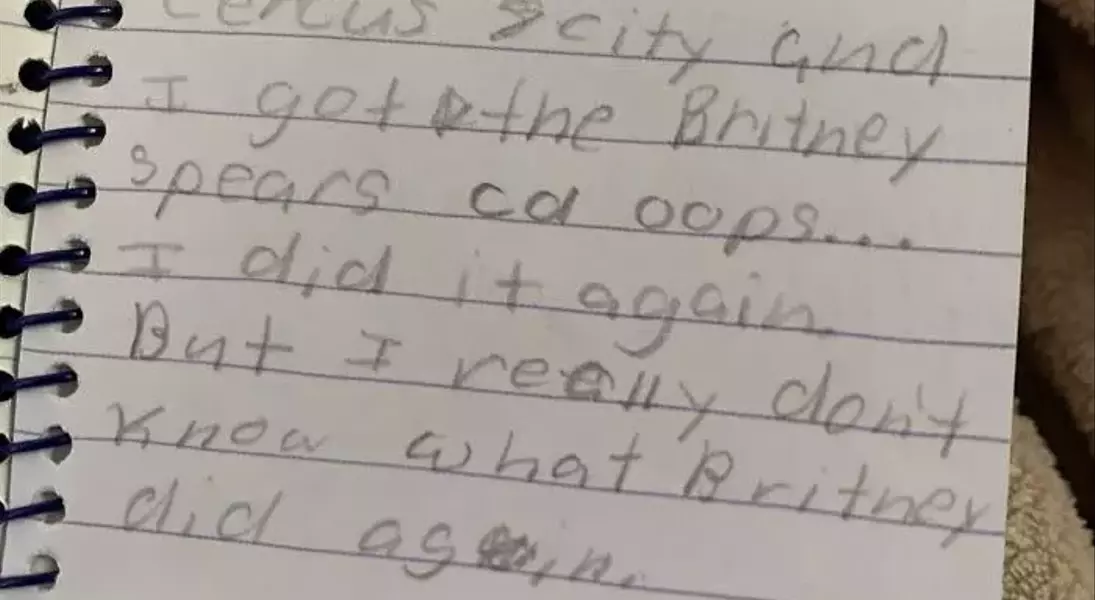 cercus scity and
I got the Britney
spears cd oops...
I did it again
But I really don't
know what Britney
did again.